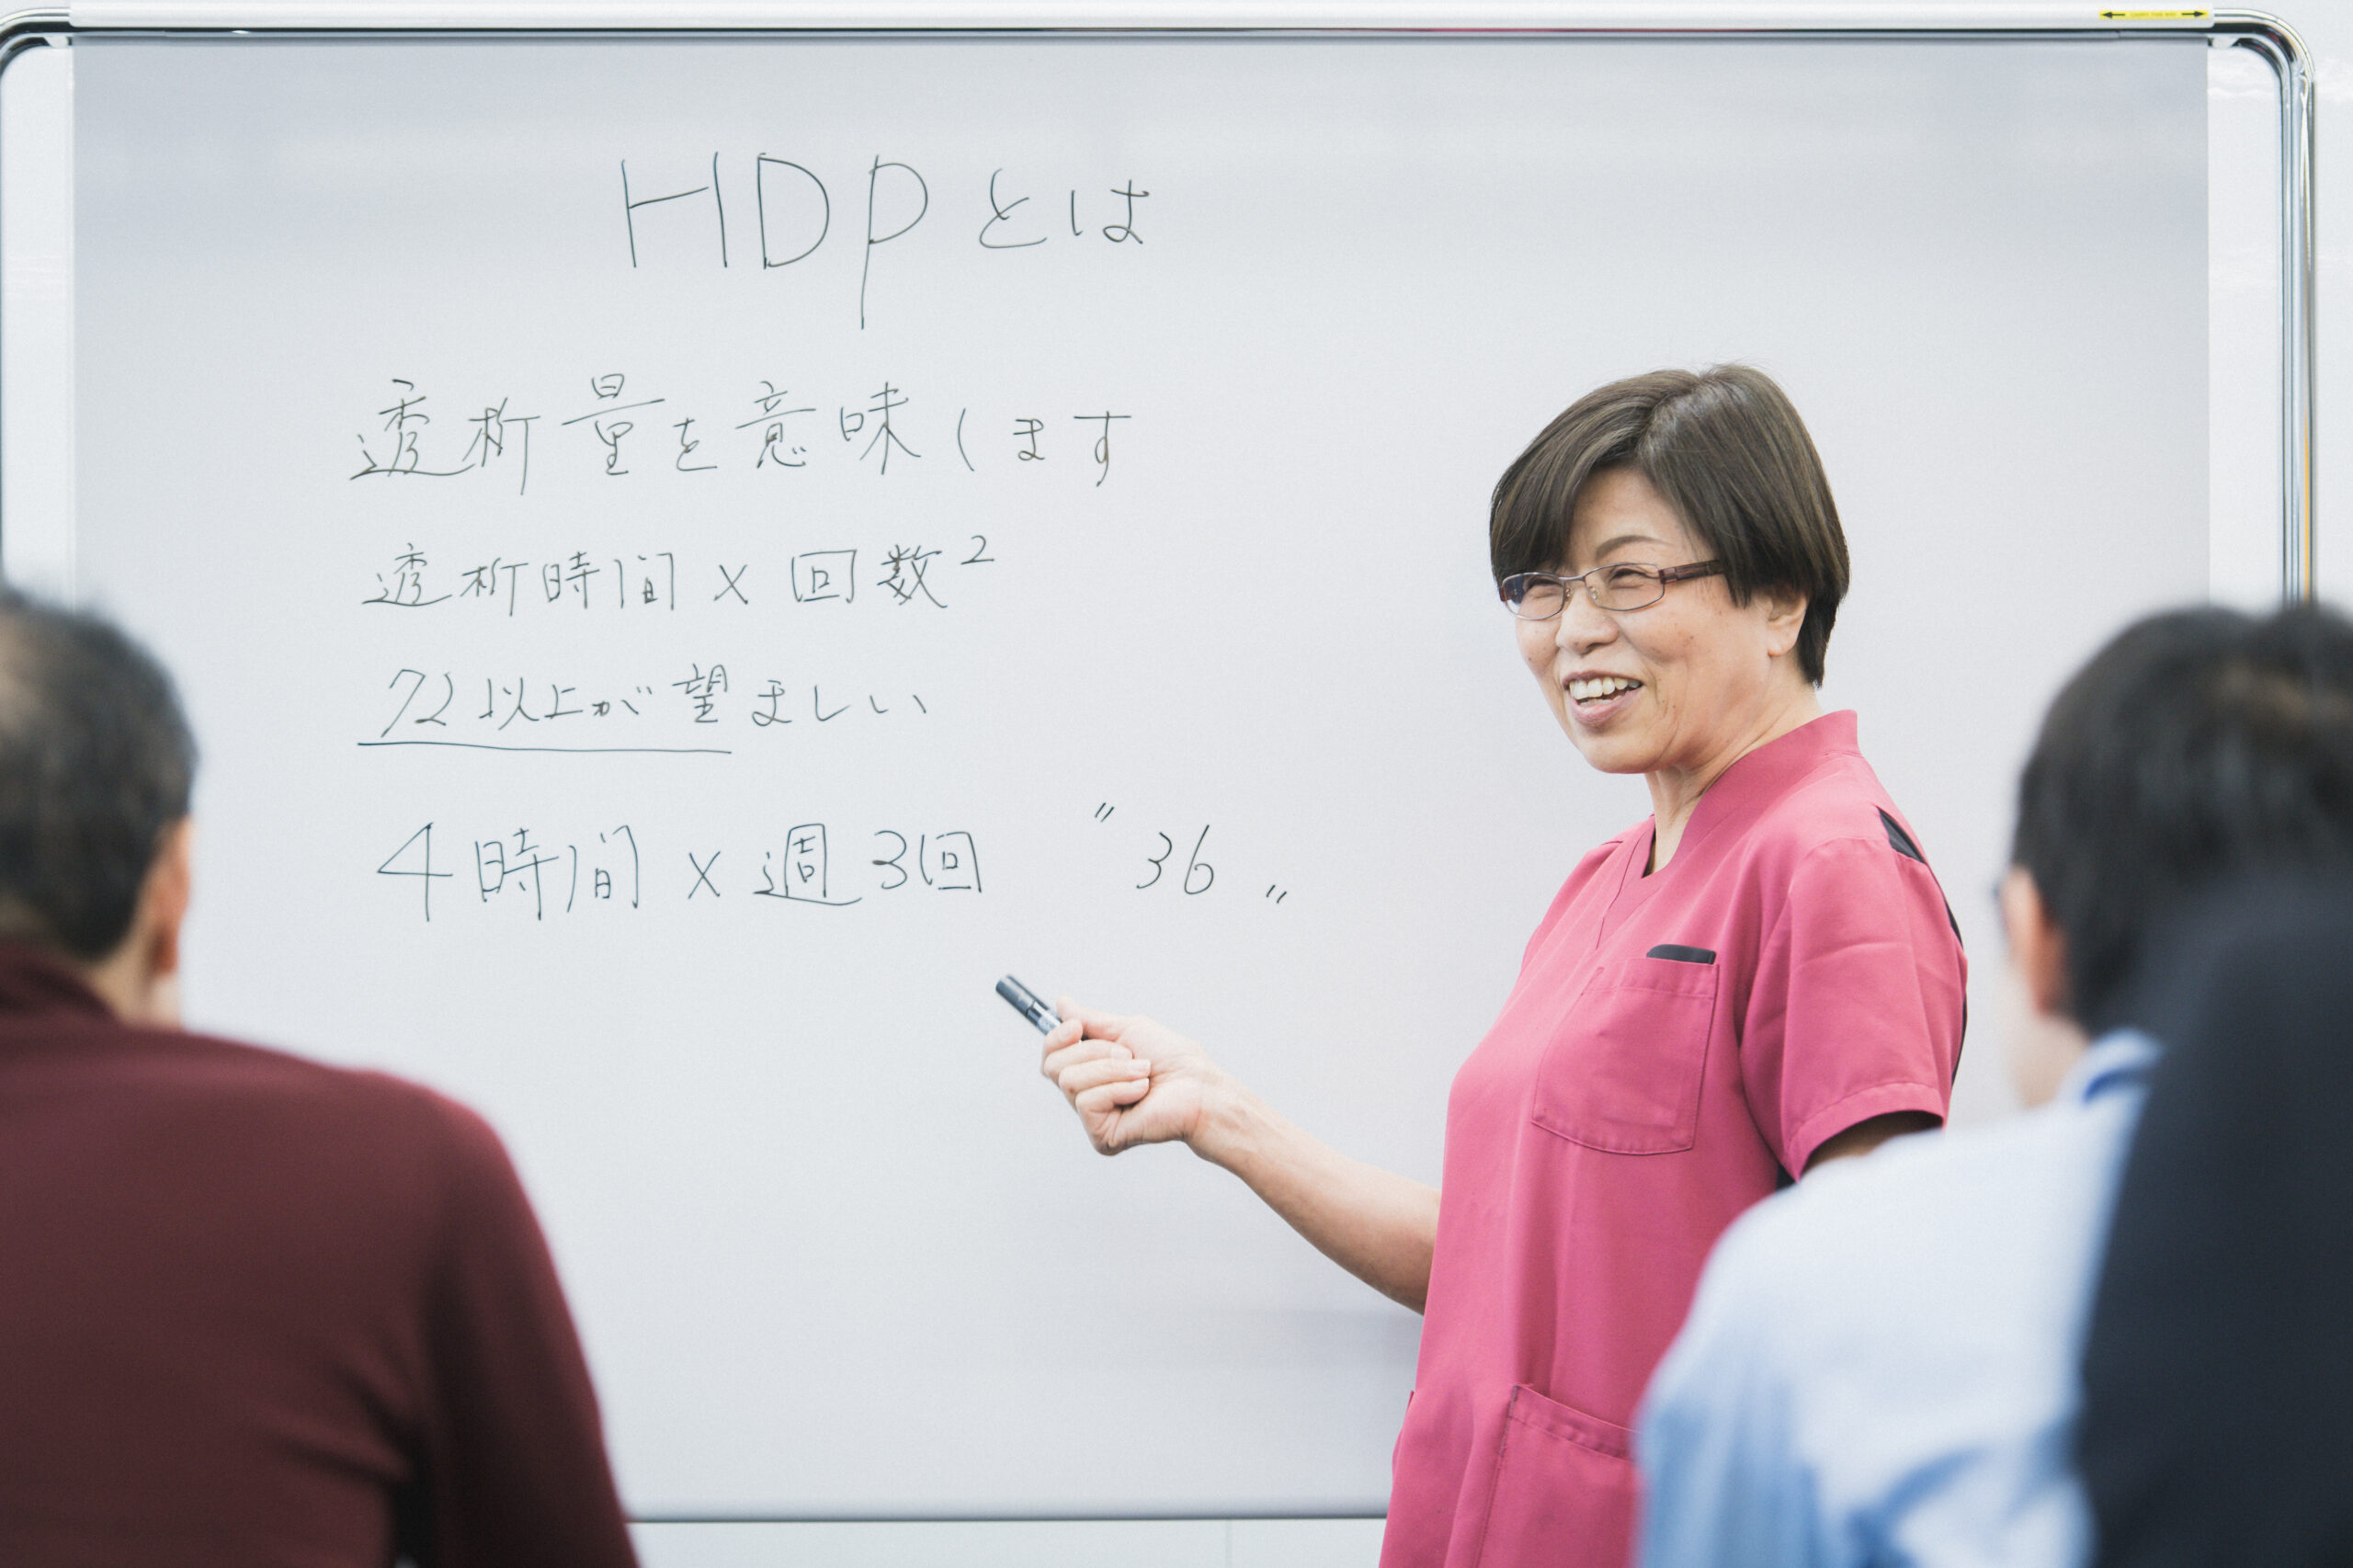 HDPとは
透析量を意味します
透析時間×回数²
72以上が望ましい
4時間×週3回 〃36〃